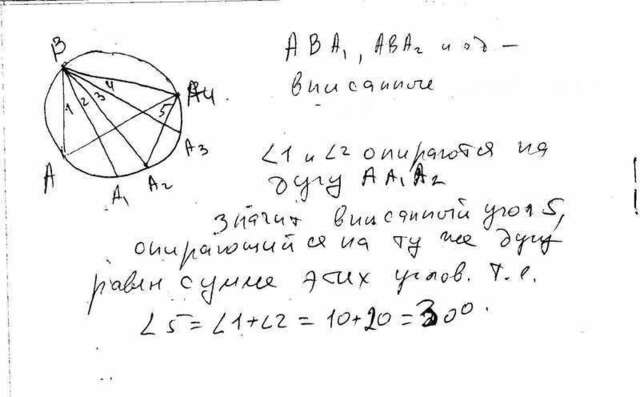 B
1 2 3 4 5
A A₁ A₂ A₃ A₄
ABA₁, ABA₂ и др —
вписанные
∠1 и ∠2 опираются на
дугу AA₁A₂
значит вписанный угол 5,
опирающийся на ту же дугу
равен сумме этих углов. т.е.
∠5 = ∠1+∠2 = 10+20 = 30⁰.